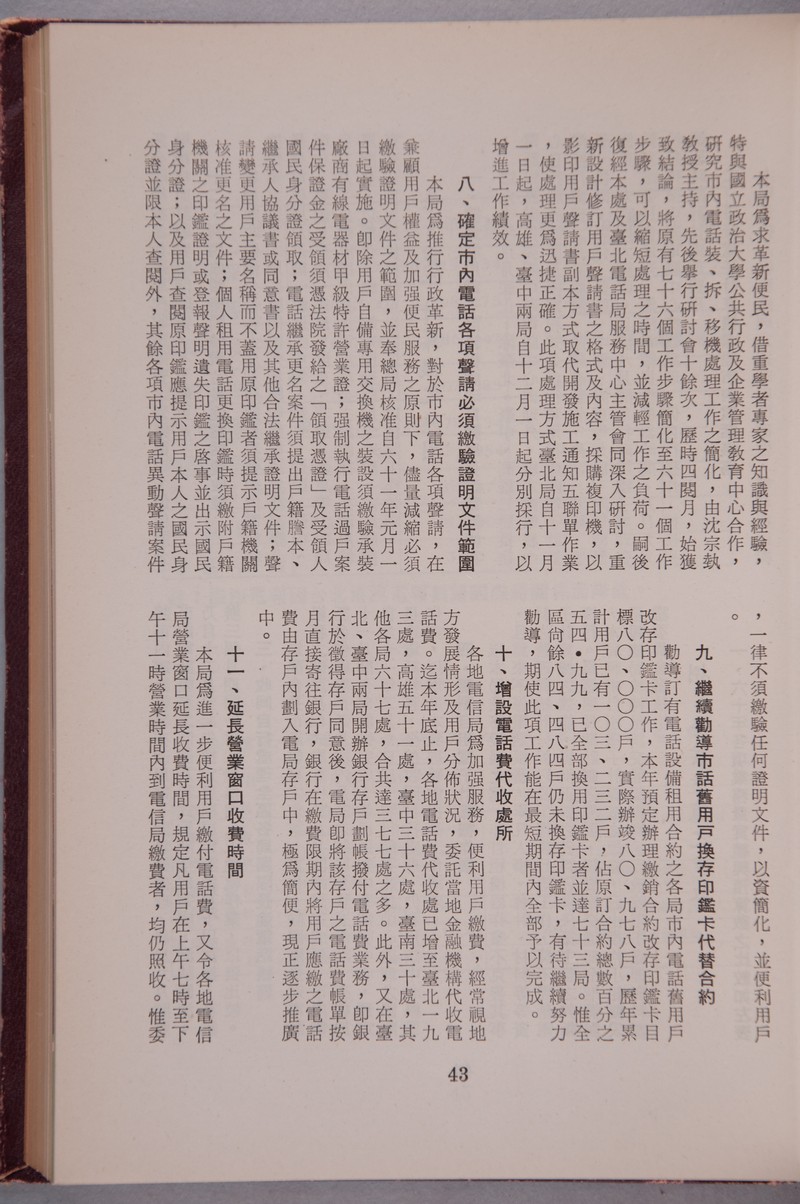 本局爲求革新便民，借重學者專家之知識與經驗，
特與國立政治大學公共行政及企業管理教育中心合作，
研究市內電話裝、拆、移機處理工作之簡化，由沈宗執
教授主持，先後舉行研討會十餘次，歷時四閱月，始獲
致結論，將原有七十六個工作步驟簡化至六十一個工作
步驟，可以縮短處理之時間，並減輕工作之負荷。嗣後
復經本處及臺北電話局服務中心主管會同深入研討，重
新設計修訂用戶聲請書之格式及內容，採購複印機，以
影印用戶聲請書副本方式取代開發施工通知五聯單作業
，使處理更爲迅捷正確。此項處理方式臺北局自十一月
一日起，高雄、臺中兩局自十二月一日起分別採行，以
增進工作績效。
八、確定市內電話各項聲請必須繳驗證明文件範圍
本局爲推行行政革新，對於市內電話各項聲請，在
兼顧用戶權益及加强便民服務之原則下，儘量減縮必須
繳驗證明文件之範圍，並奉總局核准自六十一年元月一
日起實施。卽除用戶自備專用交換機之裝設須繳驗承裝
廠商有線電器材甲級特許營業證；强制執行電話過戶案
件保證金之受領須憑法院發給之「領取憑證」及受領人
國民身分證領取；電話繼承更名案件須提出戶籍謄本、
繼承人協議書或同意書以及其他合法繼承證明文件；聲
請變更用戶主要名稱而不蓋用原印鑑者須提示戶籍機關
核准更名之文件；個人租用電話更換印鑑時須繳附戶籍
機關之印鑑證明或登報聲明遺失印鑑之啓事並出示國民
身分證；以及用戶查閱原印鑑應提示用戶本人之國民身
分證並限本人查閱外，其餘各項市內電話異動聲請案件
，一律不須繳驗任何證明文件，以資簡化，並便利用戶
。
九、繼續勸導市話舊用戶換存印鑑卡代替合約
勸導訂有電話設備租用合約之各局市內電話舊用戶
改存印鑑卡工作，本年預定辦理繳銷合約改存印鑑卡目
標八〇、〇〇〇戶，實際辦竣八〇、九七八戶，歷年累
計用戶已有一〇三、二三二戶，佔原訂合約總數百分之
五四•九九，已全部換用印鑑卡者並達七十三局。惟全
區尙餘八四、四八四戶仍未換存印鑑卡，有待繼續努力
勸導，期使此項工作能在最短期間內全部予以完成。
十、增設電話費代收處所
各地電信局爲加强服務，便利用戶繳費，經常視地
方發展情形及用戶分佈狀況，委託當地金融機構代收電
話費。迄本年底止，各地電話費代收處已增至臺北一九
三處，高雄五十一處，臺中三十六處，臺南三十處，其
他各局六十七處，合共達三七七處之多。此外，又在臺
北、臺中兩局開辦銀行存戶劃帳撥付電話費業務，卽銀
行於徵得存戶同意後，電局卽將該存戶之電話費帳單按
月直接寄往銀行，銀行在繳費限期內將用戶應繳之電話
費由存戶內劃入電局存戶中，極爲簡便，現正逐步推廣
中。
十一、延長營業窗口收費時間
本局爲進一步便利用戶繳付電話費，又令各地電信
局營業窗口延長收費時間，規定凡用戶在上午七時至下
午十一時營業時間內到電信局繳費者，均仍照收。惟委
43